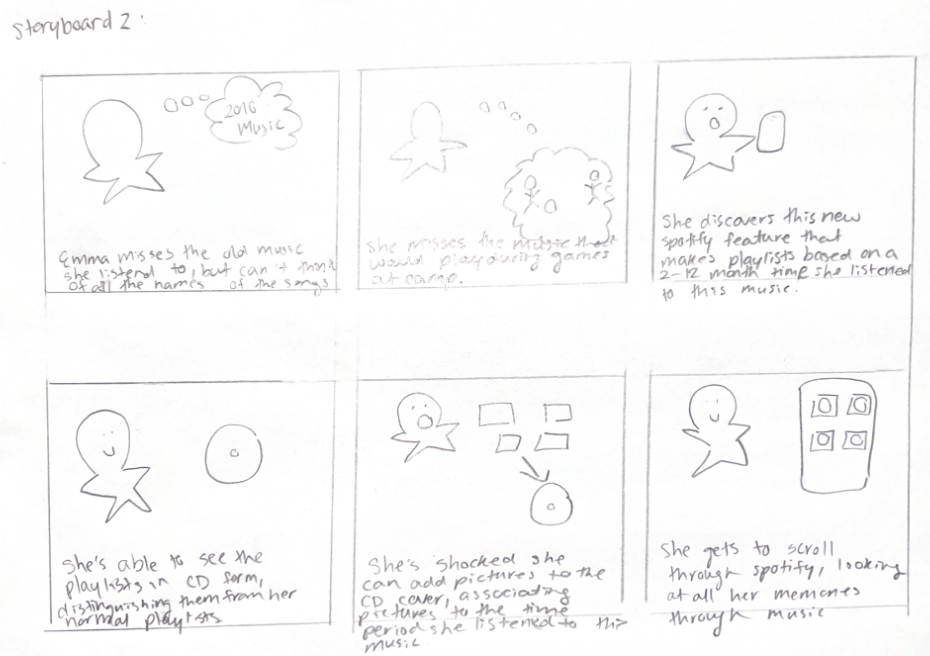 Storyboard 2:
2016
Music
Emma misses the old music
she listend to, but can't think
of all the names of the songs
She misses the music that
would play during games
at camp.
She discovers this new
spotify feature that
makes playlists based on a
2-12 month time she listened
to this music.
She's able to see the
playlists in CD form,
distinguishing them from her
normal playlists
She's shocked she
can add pictures to the
CD cover, associating
pictures to the time
period she listened to this
music
She gets to scroll
through spotify, looking
at all her memories
through music